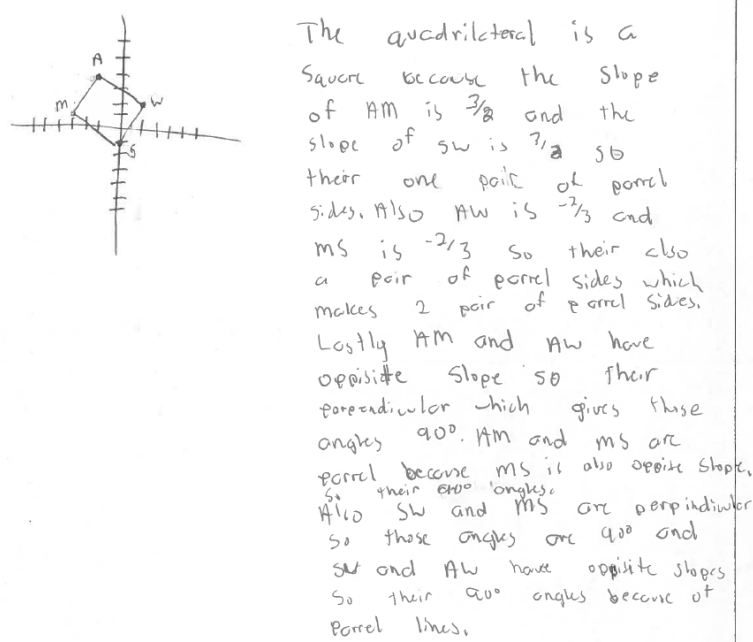 A
M
W
S
The quadrilateral is a
Square because the slope
of AM is 3/2 and the
slope of SW is 3/2 so
their one pair of parrel
sides. Also AW is -2/3 and
MS is -2/3 so their also
a pair of parrel sides which
makes 2 pair of parrel sides.
Lastly AM and AW have
oppisitte slope so their
perpendicular which gives those
angles 90°. AM and MS are
parrel because MS is also oppsite slope.
So their angles.
Also SW and MS are perpindiwlar
so those angles are 90° and
SW and AW have oppisite slopes
So their 90° angles because of
Parrel lines.